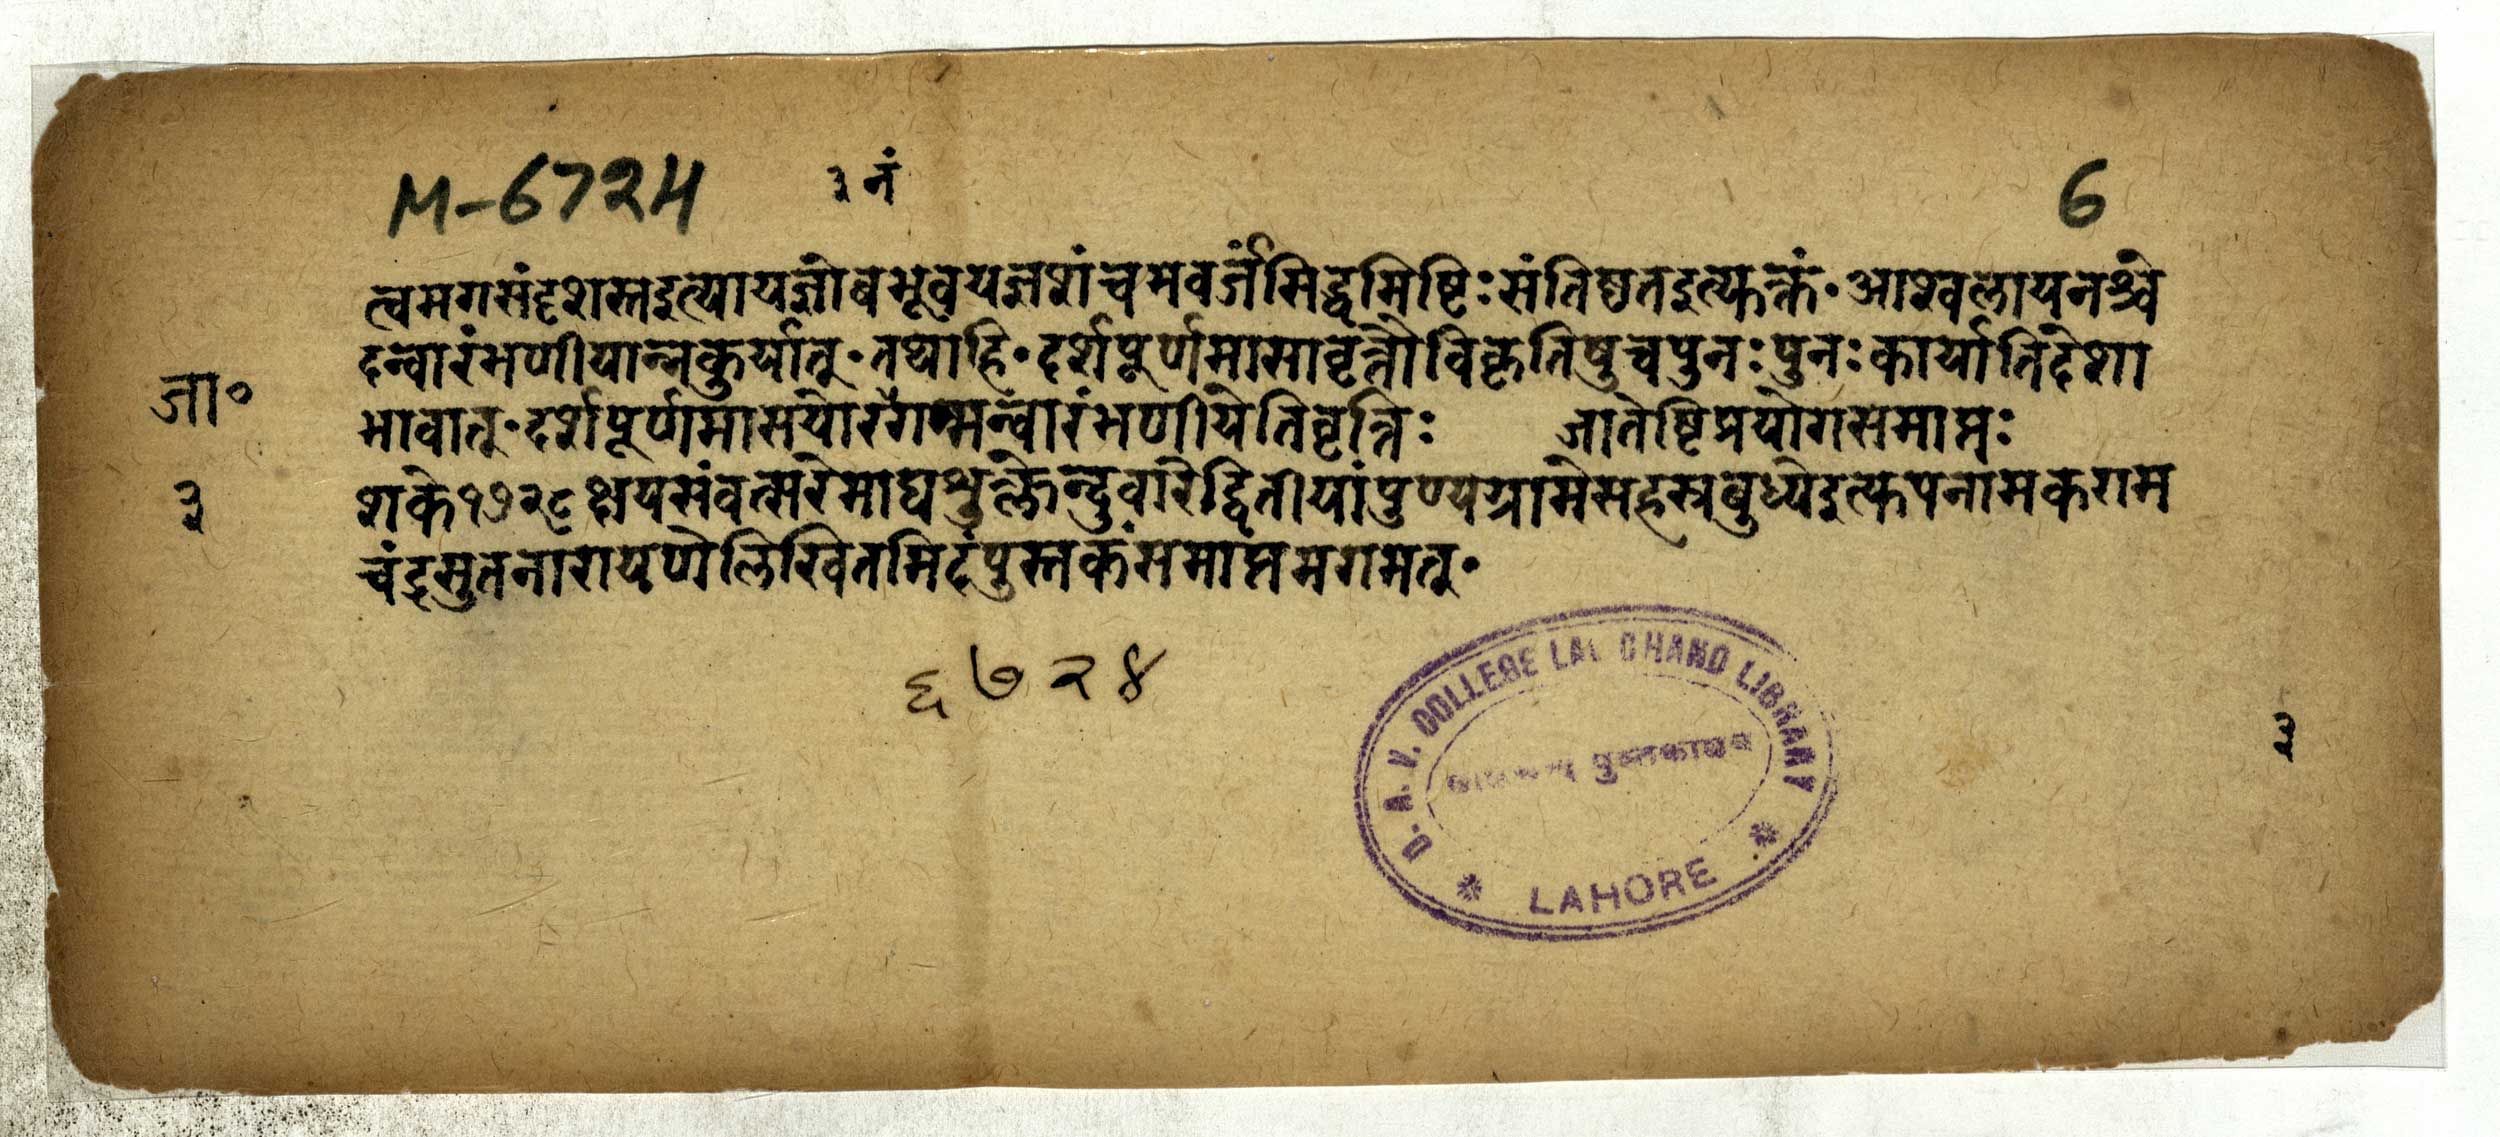 M-6724
३ नं
6
त्वमगसंदृशस्तइत्यायज्ञोबभूवयज्ञशंचमेवर्जंसिद्धमिष्टिःसंतिष्ठतइत्युक्तं॰आश्वलायनश्चे
दन्वारंभणीयान्नकुर्यात्॰तथाहि॰दर्शपूर्णमासावृत्तौविकृतिषुचपुनःपुनःकार्यातिदेशा
जा॰
भावात्॰दर्शपूर्णमासयोरंगमन्वारंभणीयेतिवृत्तिः जातेष्टिप्रयोगसमाप्तः
३
शके१७२८क्षयसंवत्सरेमाघशुक्लेन्दुवारेद्वितीयांपुण्यग्रामेसहस्रबुध्येइत्युपनामकराम
चंद्रसुतनारायणेलिखितमिदंपुस्तकंसमाप्तमगमत्॰
६७२४
D. A. V. COLLEGE LAL CHAND LIBRARY
पुस्तकालय
LAHORE
३